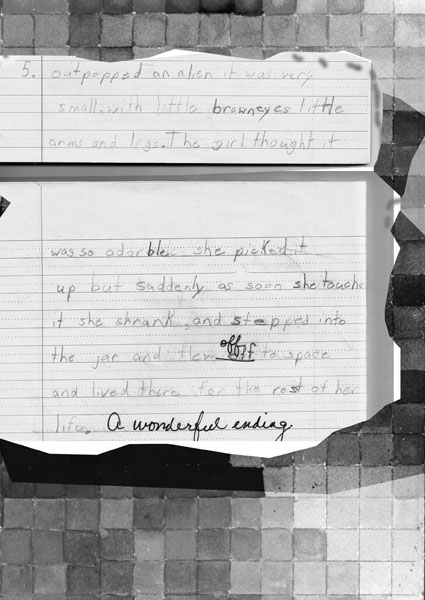 5. outpopped an alien it was very
small, with little browneyes little
arms and legs. The girl thought it
was so adorble. she picked it
up but suddenly as soon she touche
it she shrank, and stepped into
the jar and flew off to space
and lived there for the rest of her
life. A wonderful ending